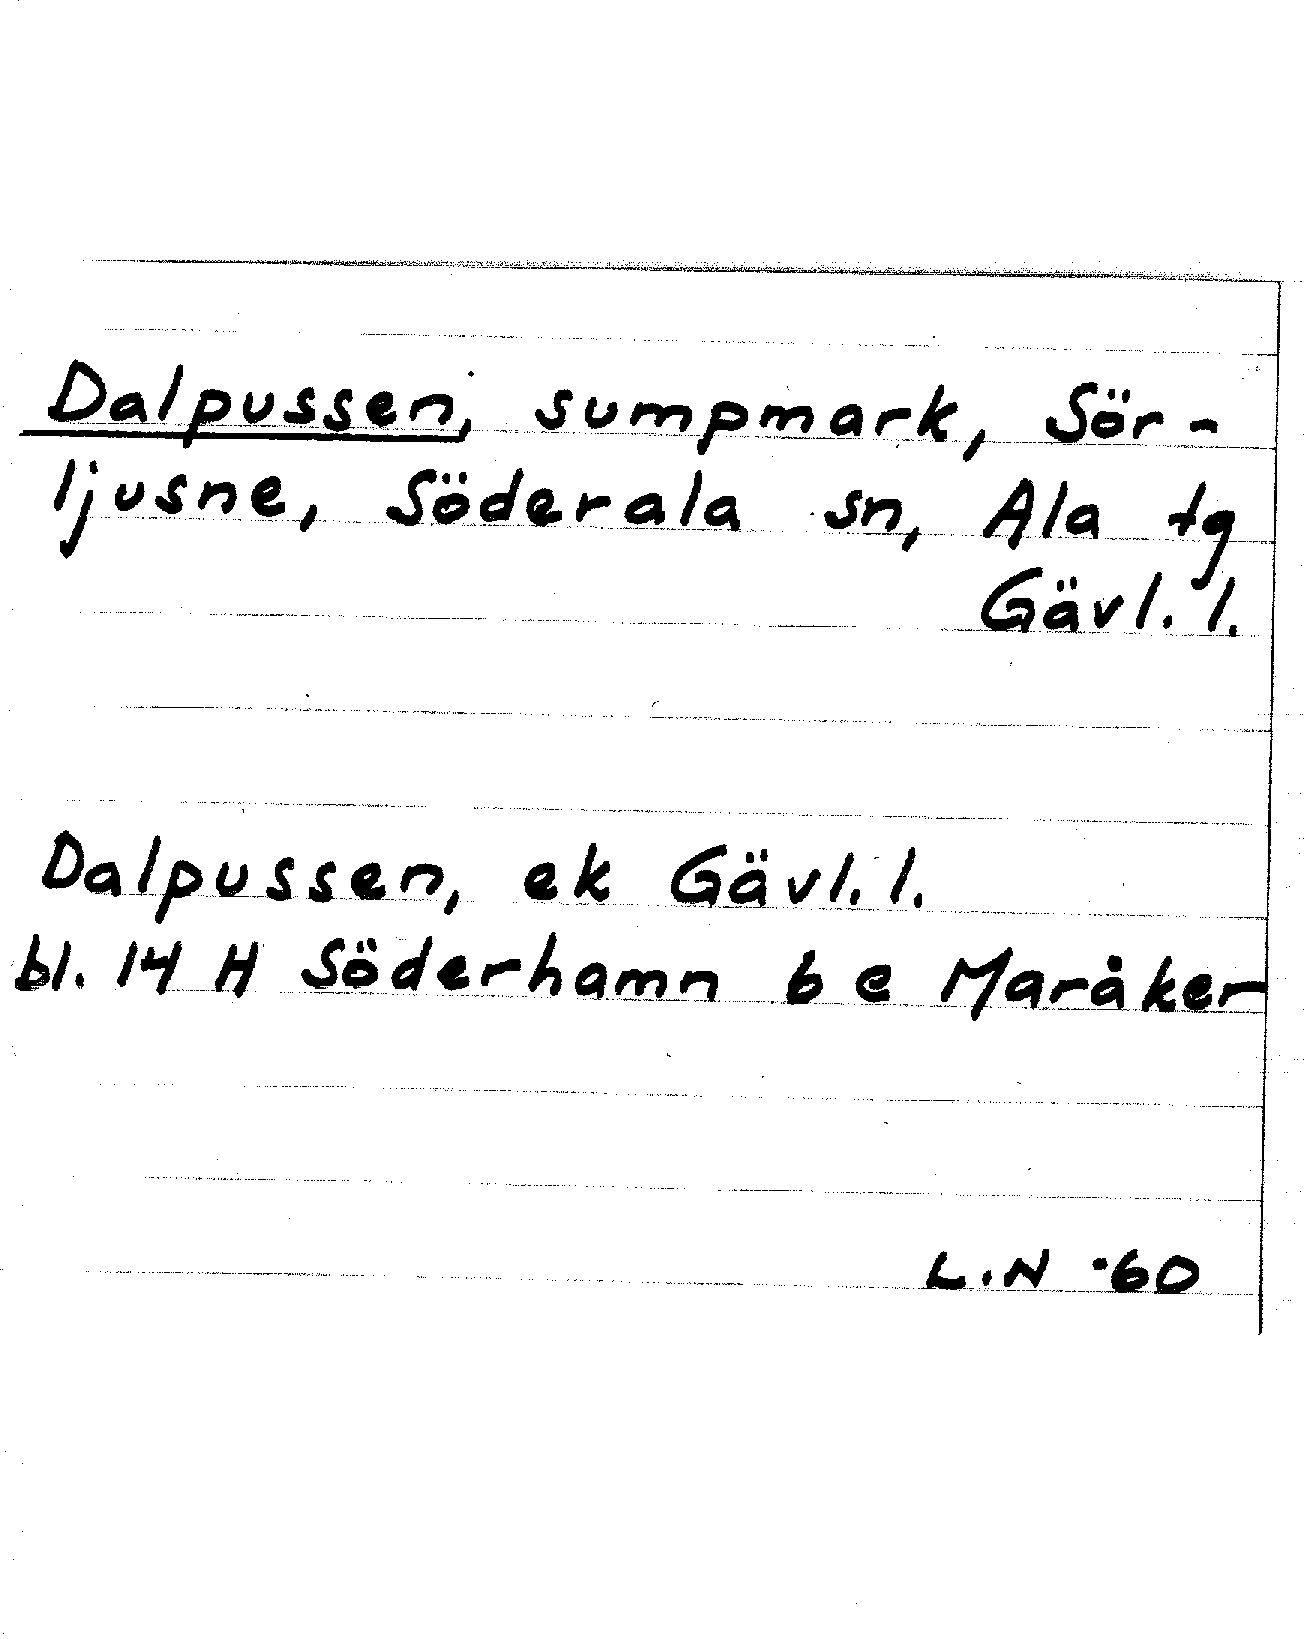 Dalpussen, sumpmark, Sör-
ljusne, Söderala sn, Ala tg
Gävl. l.
Dalpussen, ek Gävl. l.
bl. 14 H Söderhamn 6 e Maråker
L.N -60